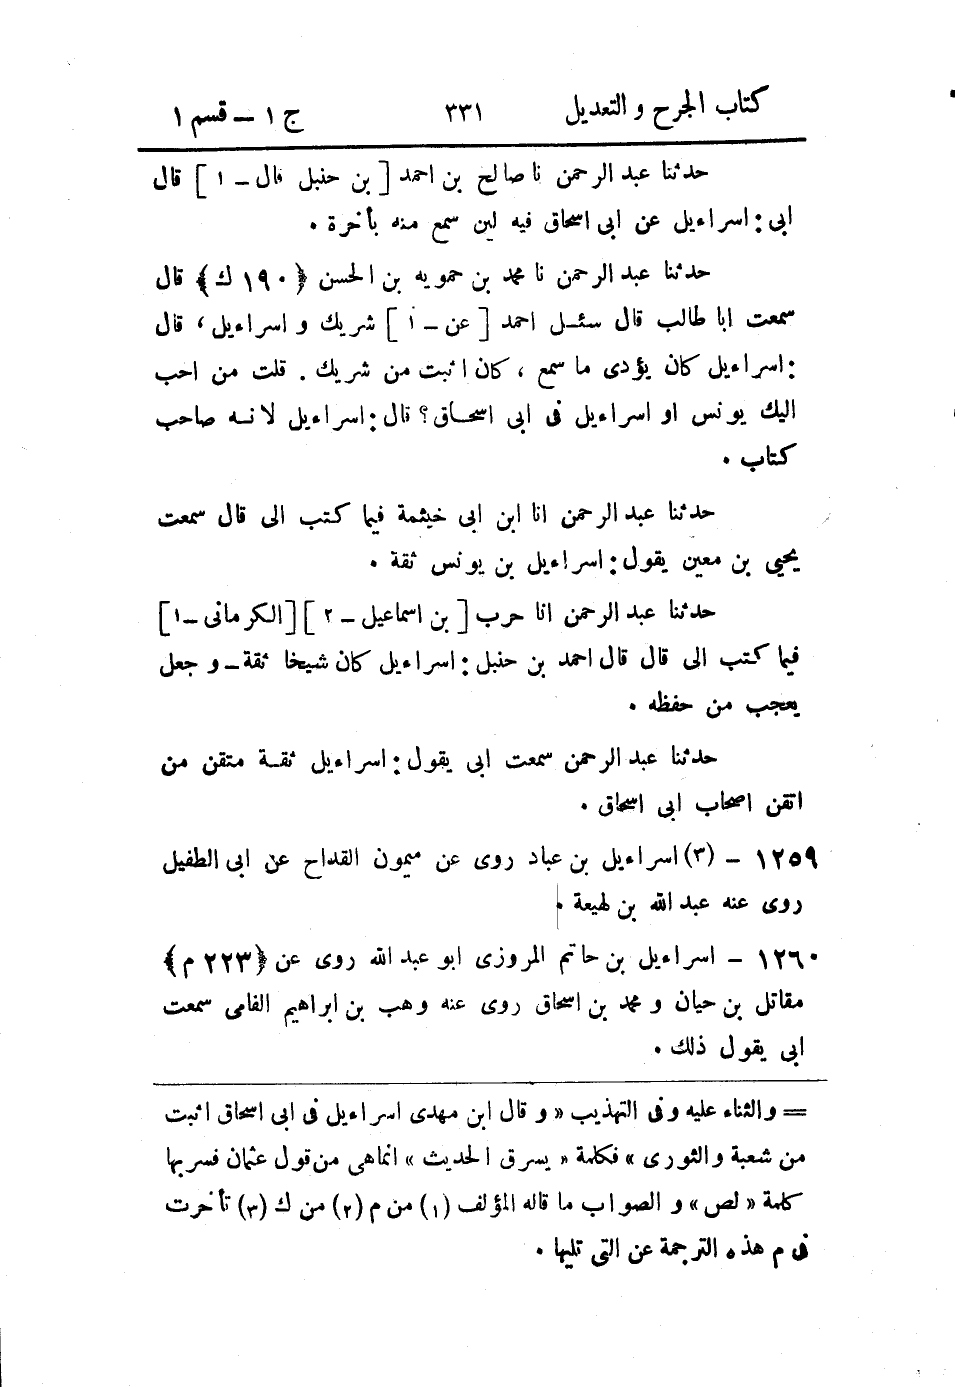 كتاب الجرح و التعديل ٣٣١ ج ١ – قسم ١
حدثنا عبد الرحمن نا صالح بن احمد [ بن حنبل قال – ١ ] قال
ابى : اسراءيل عن ابى اسحاق فيه لين سمع منه بأخرة •
حدثنا عبد الرحمن نا محمد بن حمويه بن الحسن ﴿ ١٩٠ ك ﴾ قال
سمعت ابا طالب قال سئل احمد [ عن – ١ ] شريك و اسراءيل، قال
: اسراءيل كان يؤدى ما سمع ، كان اثبت من شريك . قلت من احب
اليك يونس او اسراءيل فى ابى اسحاق؟ قال : اسراءيل لانه صاحب
كتاب •
حدثنا عبد الرحمن انا ابن ابى خيثمة فيما كتب الى قال سمعت
يحيى بن معين يقول : اسراءيل بن يونس ثقة •
حدثنا عبد الرحمن انا حرب [ بن اسماعيل – ٢ ] [ الكرمانى – ١ ]
فيما كتب الى قال قال احمد بن حنبل : اسراءيل كان شيخا ثقة – و جعل
يعجب من حفظه •
حدثنا عبد الرحمن سمعت ابى يقول : اسراءيل ثقة متقن من
اتقن اصحاب ابى اسحاق •
١٢٥٩ – (٣) اسراءيل بن عباد روى عن ميمون القداح عن ابى الطفيل
روى عنه عبد الله بن لهيعة •
١٢٦٠ – اسراءيل بن حاتم المروزى ابو عبد الله روى عن ﴿ ٢٢٣ م ﴾
مقاتل بن حيان و محمد بن اسحاق روى عنه وهب بن ابراهيم الفامى سمعت
ابى يقول ذلك •
= والثناء عليه وفى التهذيب « و قال ابن مهدى اسراءيل فى ابى اسحاق اثبت
من شعبة والثورى » فكلمة « يسرق الحديث » انماهى من قول عثمان فسربها
كلمة « لص » و الصواب ما قاله المؤلف (١) من م (٢) من ك (٣) تأخرت
فى م هذه الترجمة عن التى تليها •